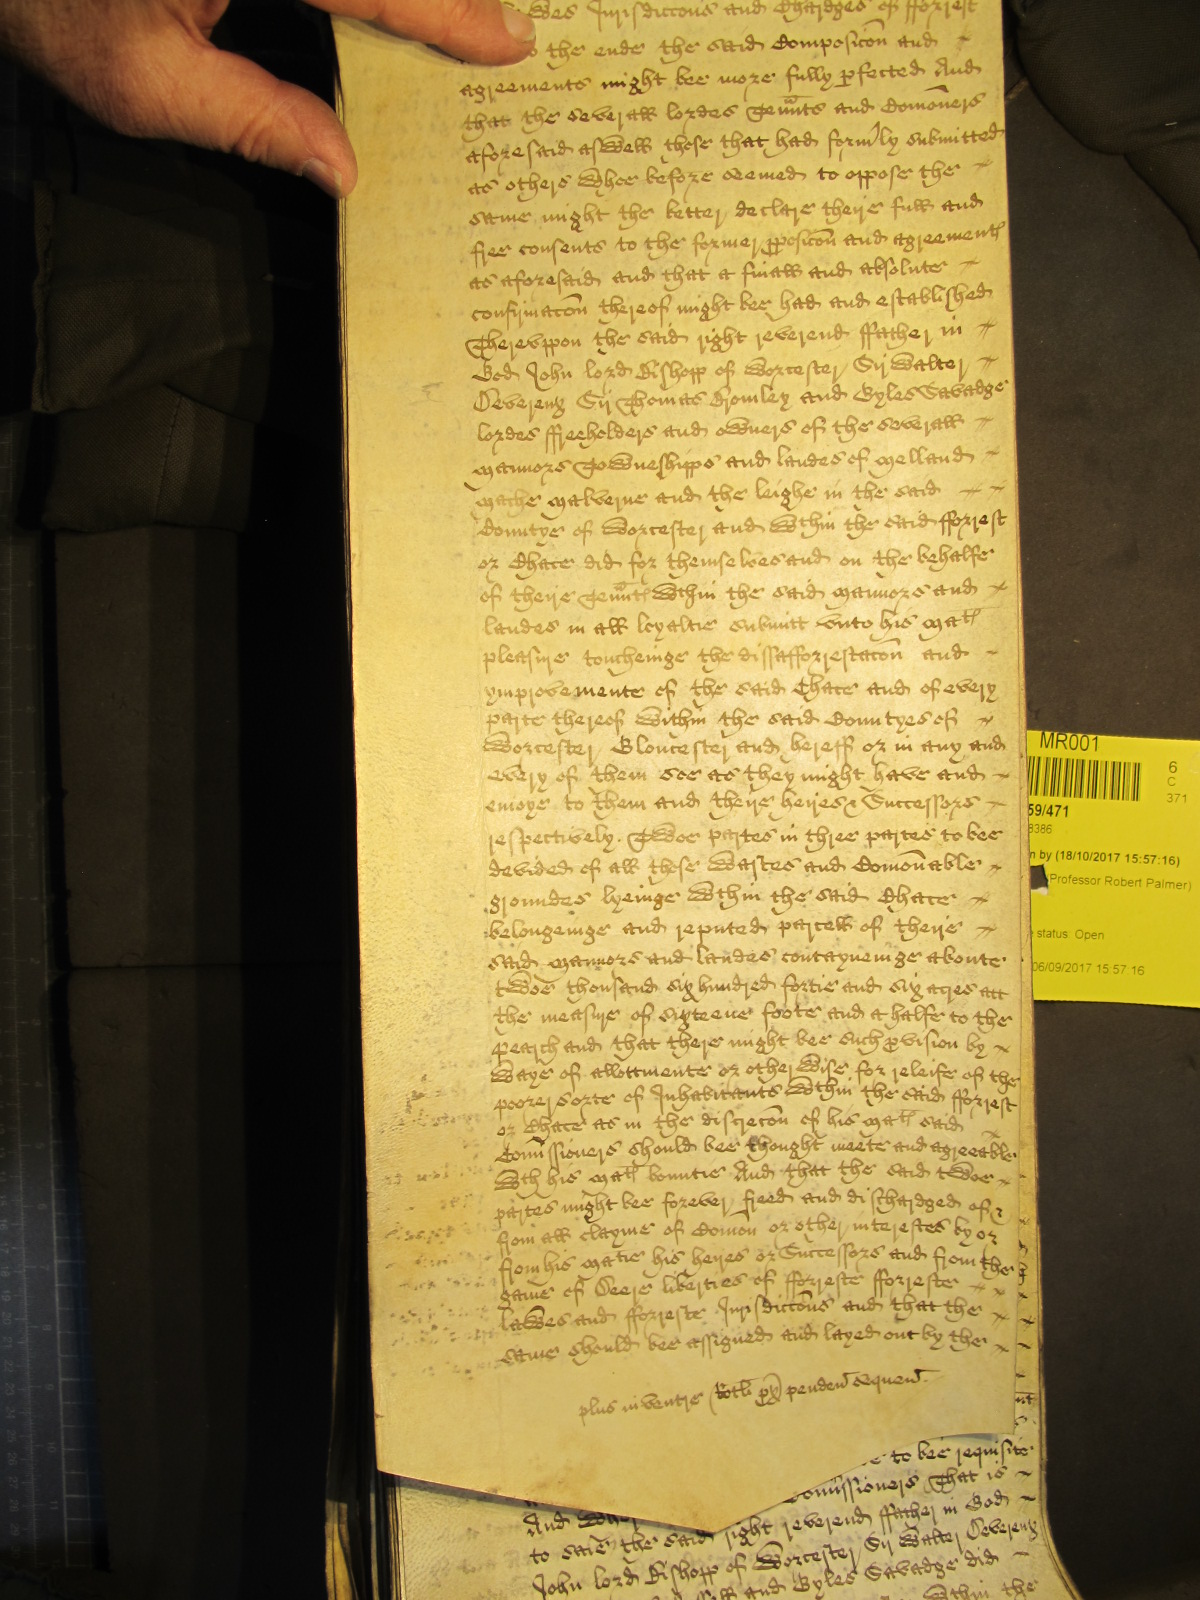 Jurisdiccons and Chardges of fforrest
to the ende the said Composicon and
agreements might bee more fully pfected And
that the severall lordes Tennts and Comoners
aforesaid aswell those that had formly submitted
as others whoe before seemed to oppose the
same might the better declare theire full and
free consents to the former pposicon and agreement
as aforesaid and that a finall and absolute
confirmacon thereof might bee had and established
Therevppon the said right reverend ffather in
God John lord Bishopp of Worcester Sir Walter
Devereux Sir Thomas Bromley and Gyles Savadge
lordes ffreeholders and owners of the severall
mannors Towneshipps and landes of Welland
mathe malverne and the leighe in the said
Countye of Worcester and wthin the said fforrest
or Chace did for themselves and on the behalfe
of theire Tennts wthin the said mannors and
landes in all loyaltie submitt vnto his matis
pleasure toucheinge the disafforrestacon and
ymprovemente of the said Chace and of every
parte thereof within the said Countyes of
Worcester Gloucester and hereff or in any and
every of them soe as they might have and
enioye to them and theire heires & Successors
respectively. Twoe partes in three partes to bee
devided of all those wastes and Comonable
groundes lyeinge wthin the said Chace
belongeinge and reputed parcell of theire
said mannors and landes contayneinge aboute
twoe thousand six hundred fortie and six acres att
the measure of sixteene foote and a halfe to the
pearch and that there might bee such pvision by
waye of allottmente or otherwise for releife of the
poorer sorte of Inhabitants wthin the said fforrest
or Chace as in the discrecon of his matis said
Comissioners should bee thought meete and agreeable
wth his matis bountie And that the said twoe
partes might bee forever freed and dischardged of &
from all clayme of Comon or other interestes by or
from his matie his heires or Successors and from the
game of Deere liberties of fforreste fforreste
lawes and fforreste Jurisdiccons and that the
same should bee assigned and layed out by the
plus inventre Rotli px penden sequen
to bee requisite
Comissioners That is
And
to saie the said right reverend ffather in God
John lord Bishopp of Worcester Sir Walter Devereux
and Gyles Savadge did
wthin the
MR001
6
C
371
59/471
8386
n by (18/10/2017 15:57:16)
Professor Robert Palmer)
status: Open
06/09/2017 15:57:16